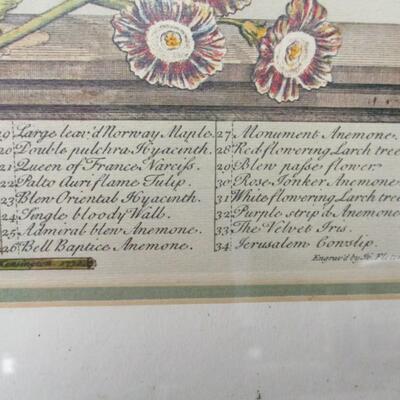 19 Large leav'd Norway Maple.
20 Double pulchra Hyacinth.
21 Queen of France Narciss.
22 Palto Auriflame Tulip.
23 Blew Oriental Hyacinth.
24 Single bloody Wall.
25 Admiral blew Anemone.
26 Bell Baptice Anemone.
27 Monument Anemone.
28 Red flowering Larch tree
29 Blew passe flower.
30 Rose Jonker Anemone
31 White flowering Larch tree
32 Purple strip'd Anemone
33 The Velvet Iris.
34 Jerusalem Cowslip.
Kensington
Engrav'd by H. Fletcher